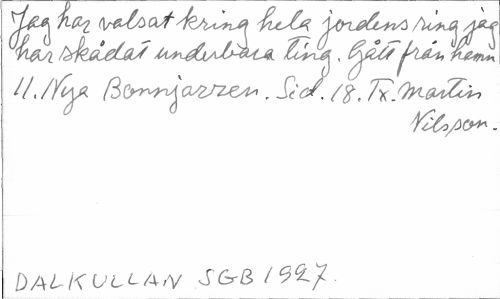 Jag har valsat kring hela jordens ring jag
har skådat underbara ting. Gått från hamn
11. Nya Bonnjazzen. Sid. 18. Tx. Martin
Nilsson.
DALKULLAN SGB 1927.